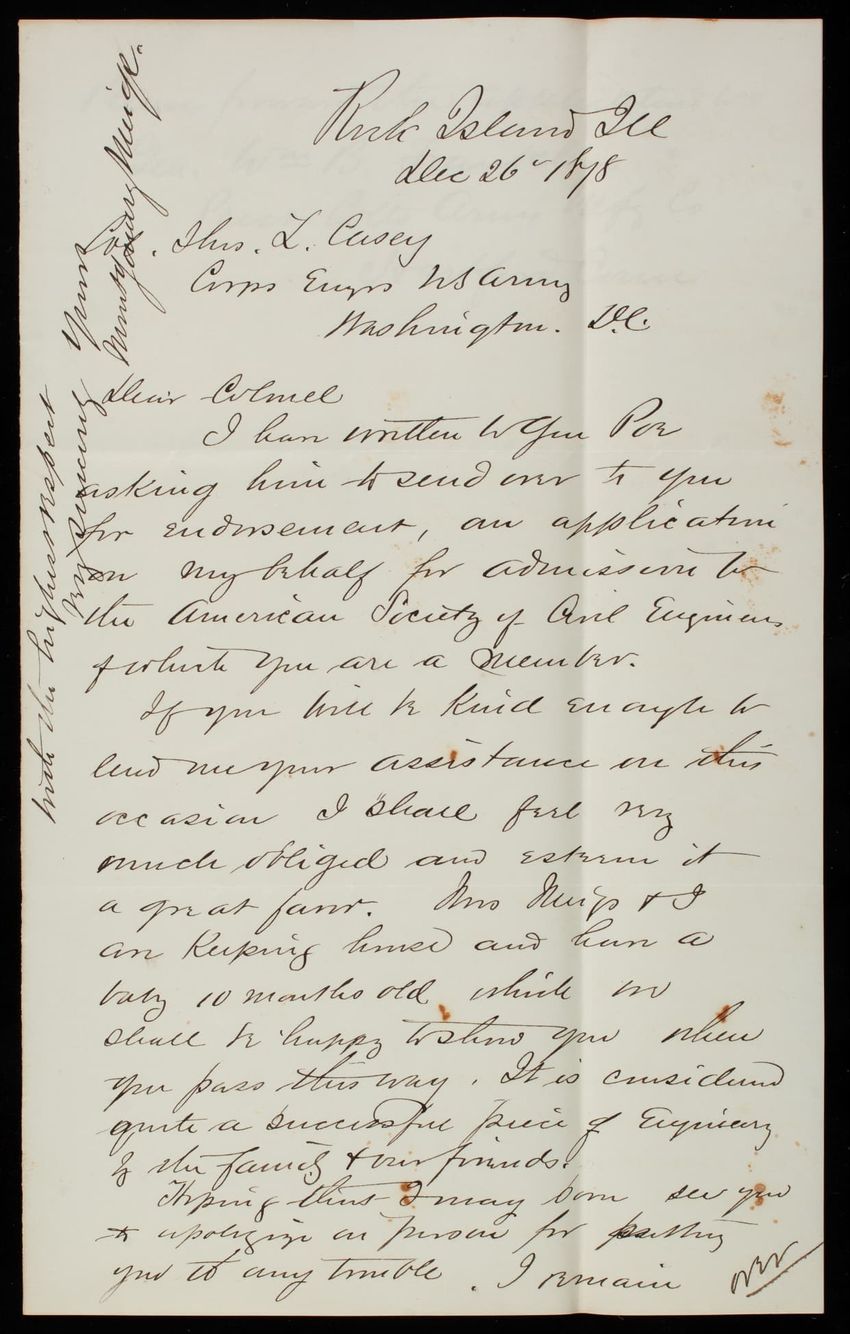 Rock Island Ill
Dec 26" 1878
Col. Thos. L. Casey
Corps Engrs US Army
Washington. D.C.
Dear Colonel
I have written to Gen Poe
asking him to send over to you
for endorsement, an application
on my behalf for admission to
the American Society of Civil Engineers
of which you are a member.
If you will be kind enough to
lend me your assistance on this
occasion I shall feel very
much obliged and esteem it
a great favor. Mrs Meigs & I
are keeping house and have a
baby 10 months old which we
shall be happy to show you when
you pass this way. It is considered
quite a successful piece of Engineery
by the family & our friends.
Hoping that I may soon see you
& apologize in person for putting
you to any trouble. I remain
over
with the highest respect
very sincerely yours
Montgomery Meigs.